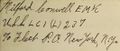 Milford Connell EM3/c
U.S.S. L C I (L) 237
℅ Fleet P.O. New York, N.Y.